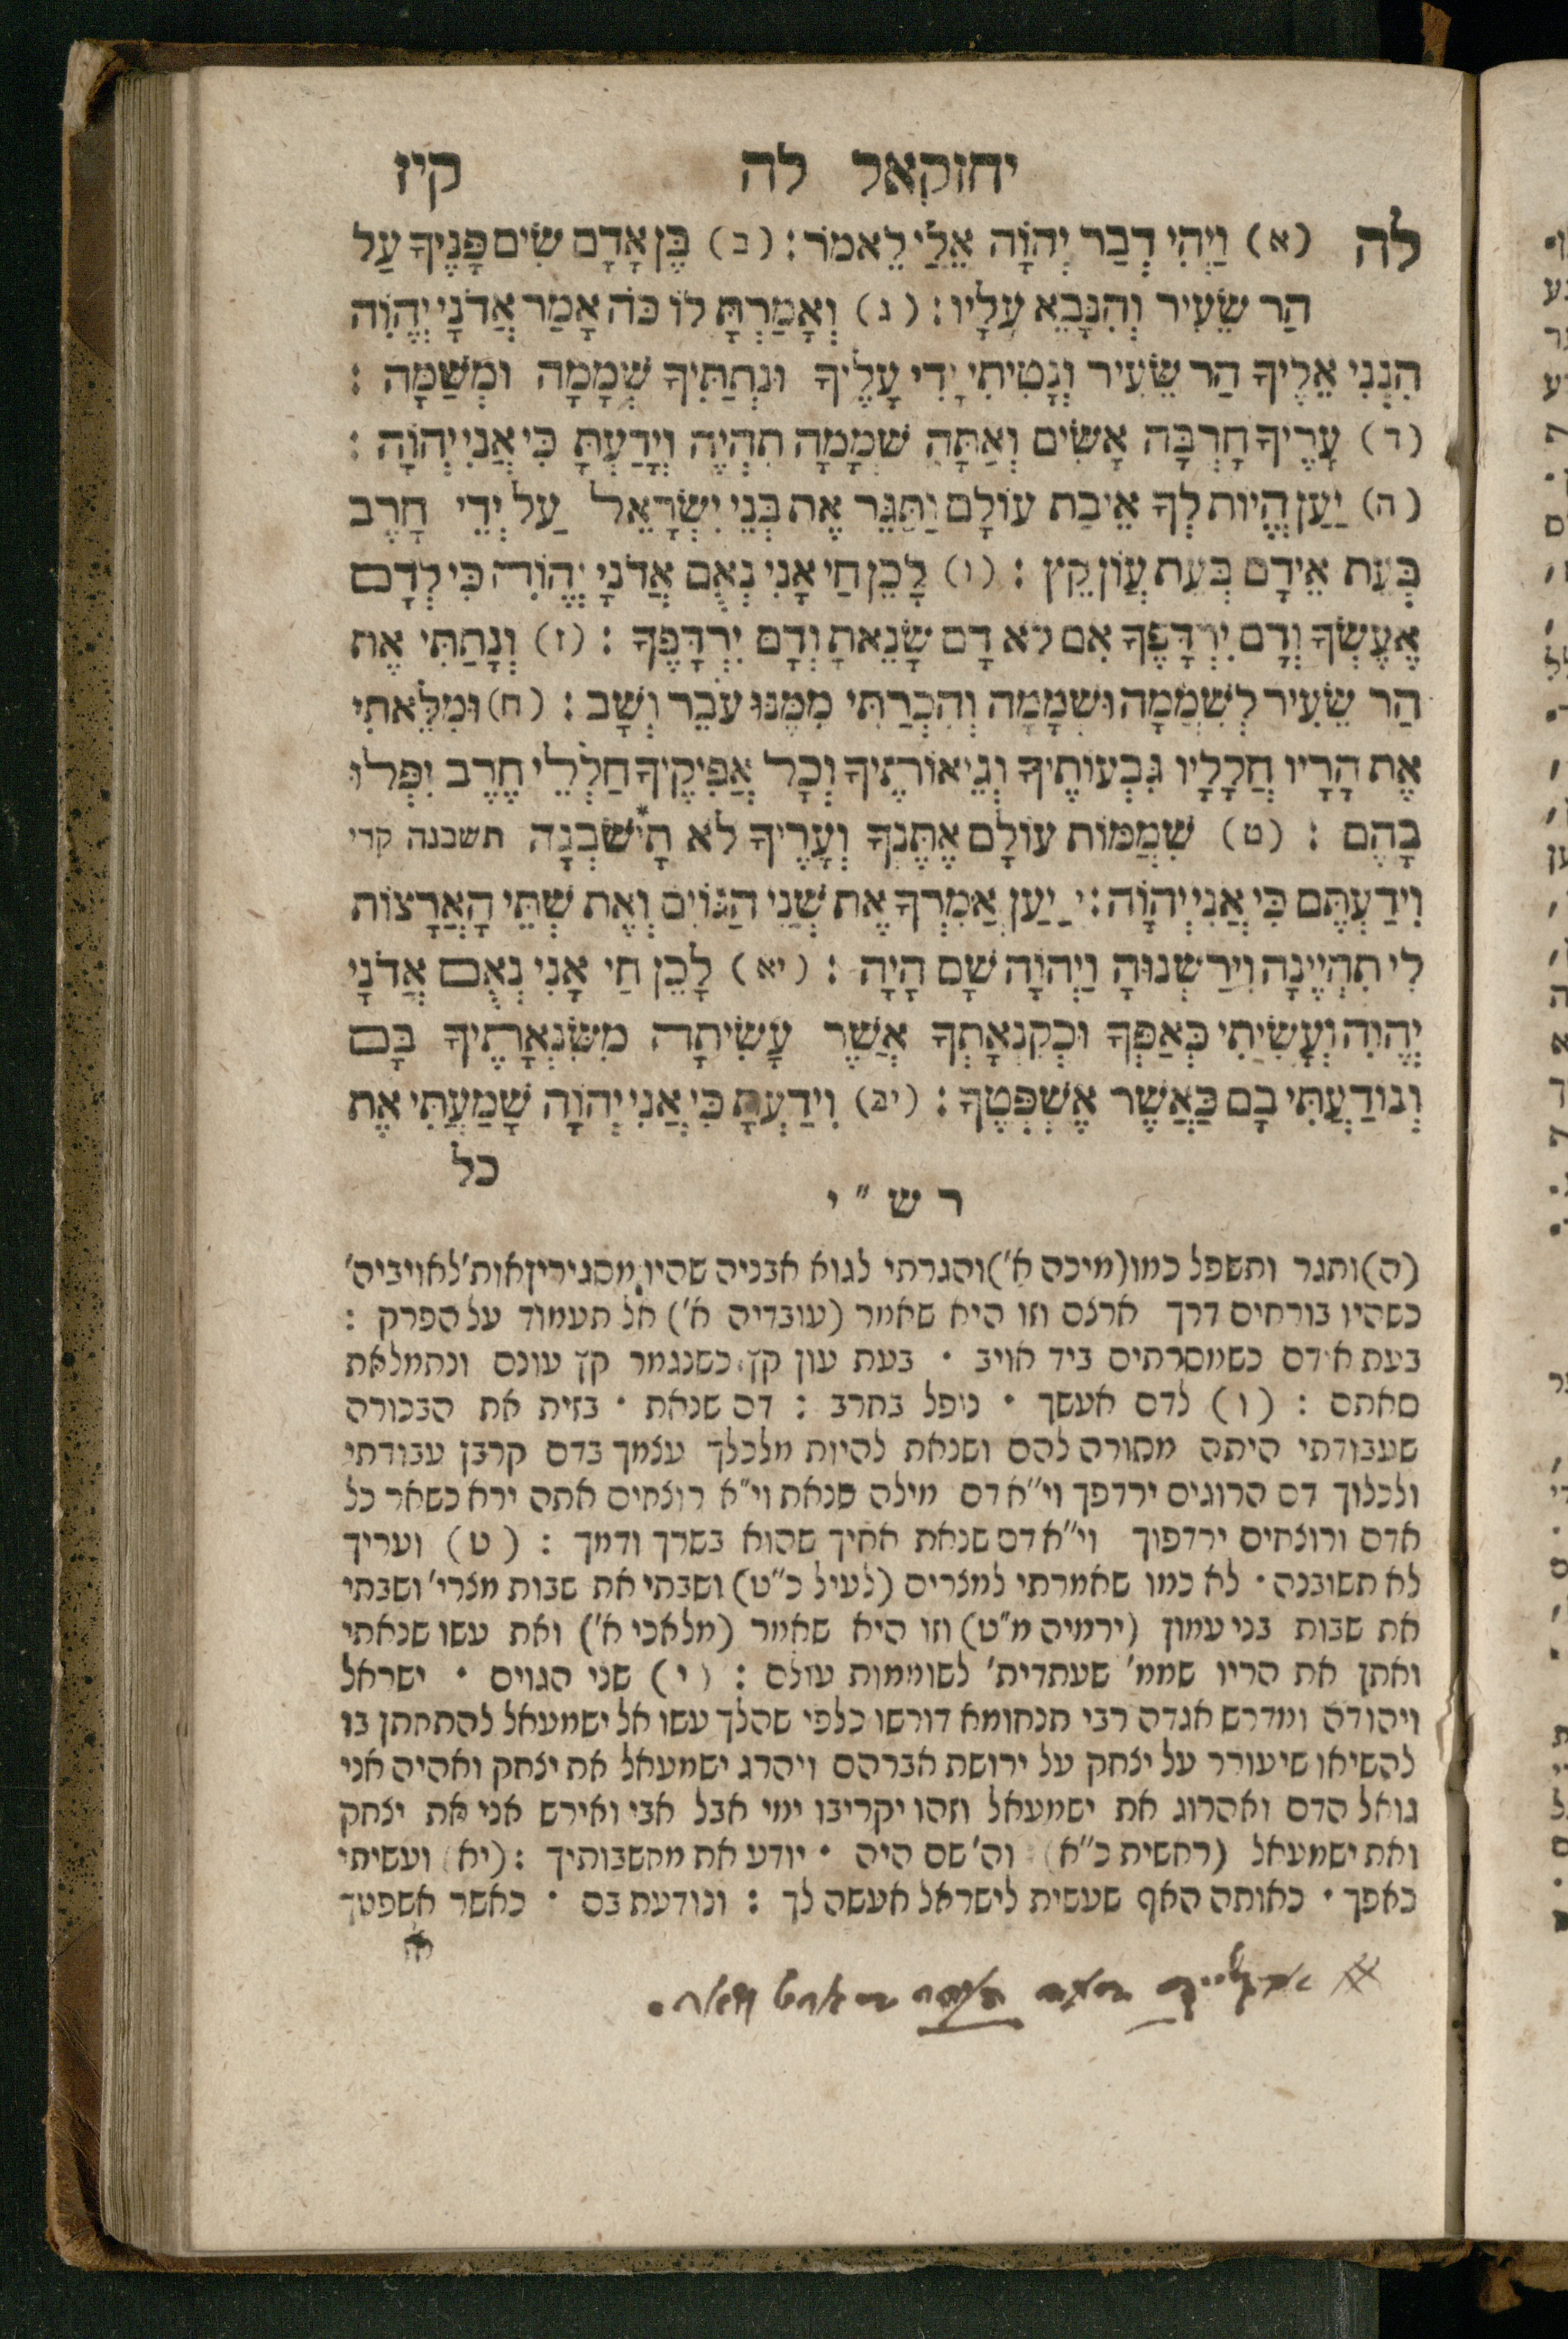 יחזקאל לה קיז
לה (א) וַיְהִי דְבַר יְהוָֹה אֵלַי לֵאמֹר: (ב) בֶּן אָדָם שִׂים פָּנֶיךָ עַל
הַר שֵׂעִיר וְהִנָּבֵא עָלָיו: (ג) וְאָמַרְתָּ לוֹ כֹּה אָמַר אֲדֹנָי יֱהֹוִה
הִנְנִי אֵלֶיךָ הַר שֵׂעִיר וְנָטִיתִי יָדִי עָלֶיךָ וּנְתַתִּיךָ שְׁמָמָה וּמְשַׁמָּה :
(ד) עָרֶיךָ חָרְבָּה אָשִׂים וְאַתָּה שְׁמָמָה תִהְיֶה וְיָדַעְתָּ כִּי אֲנִי יְהוָֹה :
(ה) יַעַן הֱיוֹת לְךָ אֵיבַת עוֹלָם וַתַּגֵּר אֶת בְּנֵי יִשְׂרָאֵל עַל יְדֵי חָרֶב
בְּעֵת אֵידָם בְּעֵת עֲוֹן קֵץ : (ו) לָכֵן חַי אָנִי נְאֻם אֲדֹנָי יֱהֹוִה כִּי לְדָם
אֶעֶשְׂךָ וְדָם יִרְדֲּפֶךָ אִם לֹא דָם שָׂנֵאתָ וְדָם יִרְדֲּפֶךָ : (ז) וְנָתַתִּי אֶת
הַר שֵׂעִיר לְשִׁמֲמָה וּשְׁמָמָה וְהִכְרַתִּי מִמֶּנּוּ עֹבֵר וָשָׁב : (ח) וּמִלֵּאתִי
אֶת הָרָיו חֲלָלָיו גִּבְעוֹתֶיךָ וְגֵיאוֹתֶיךָ וְכָל אֲפִיקֶיךָ חַלְלֵי חֶרֶב יִפְּלוּ
בָהֶם : (ט) שִׁמֲמוֹת עוֹלָם אֶתֶּנְךָ וְעָרֶיךָ לֹא תָ*ישֹׁבְנָה תשבנה קרי
וִידַעְתֶּם כִּי אֲנִי יְהוָֹה: י יַעַן אֲמָרְךָ אֶת שְׁנֵי הַגּוֹיִם וְאֶת שְׁתֵּי הָאֲרָצוֹת
לִי תִהְיֶינָה וִירַשְׁנוּהָ וַיְהוָֹה שָׁם הָיָה : (יא) לָכֵן חַי אָנִי נְאֻם אֲדֹנָי
יֱהֹוִה וְעָשִׂיתִי כְּאַפְּךָ וּכְקִנְאָתְךָ אֲשֶׁר עָשִׂיתָה מִשִּׂנְאָתֶיךָ בָּם
וְנוֹדַעְתִּי בָם כַּאֲשֶׁר אֶשְׁפְּטֶךָ : (יב) וְיָדַעְתָּ כִּי אֲנִי יְהוָֹה שָׁמַעְתִּי אֶת
כל
ר ש "י
(ה) ותגר ותשפל כמו (מיכה א') והגרתי לגוא אבניה שהיו מסגירין אות' לאויביה'
כשהיו בורחים דרך ארצם וזו היא שאמר (עובדיה א') אל תעמוד על הפרק :
בעת אידם כשמסרתים ביד אויב · בעת עון קץ כשנגמר קץ עונם ונתמלאת
סאתם : (ו) לדם אעשך · ניפל בחרב : דם שנאת · בזית את הבכורה
שעבודתי היתה מסורה להם ושנאת להיות מלכלך עצמך בדם קרבן עבודתי
ולכלוך דם הרוגים ירדפך וי"א דם מילה שנאת וי"א רוצחים אתה ירא כשאר כל
אדם ורוצחים ירדפוך וי"א דם שנאת אחיך שהוא בשרך ודמך : (ט) ועריך
לא תשובנה · לא כמו שאמרתי למצרים (לעיל כ"ט) ושבתי את שבות מצרי' ושבתי
את שבות בני עמון (ירמיה מ"ט) וזו היא שאמר (מלאכי א') ואת עשו שנאתי
ואתן את הריו שממ' שעתדית' לשוממות עולם : (י) שני הגוים · ישראל
ויהודה ומדרש אגדה רבי תנחומא דורשו כלפי שהלך עשו אל ישמעאל להתחתן בו
להשיאו שיעורר על יצחק על ירושת אברהם ויהרג ישמעאל את יצחק ואהיה אני
גואל הדם ואהרוג את ישמעאל וזהו יקריבו ימי אבל אבי ואירש אני את יצחק
ואת ישמעאל (ראשית כ"א) וה' שם היה · יודע את מחשבותיך : (יא) ועשיתי
כאפך · כאותה האף שעשית לישראל אעשה לך : ונודעת בם · כאשר אשפטך